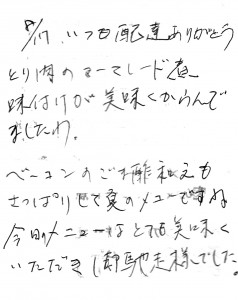 8/17 いつも配達ありがとう
とり肉のマーマレード煮
味付けが美味くからんで
ましたわ。
ベーコンのごま酢和えも
さっぱりして夏のメニューですね
今日のメニューはとても美味く
いただき御馳走様でした。